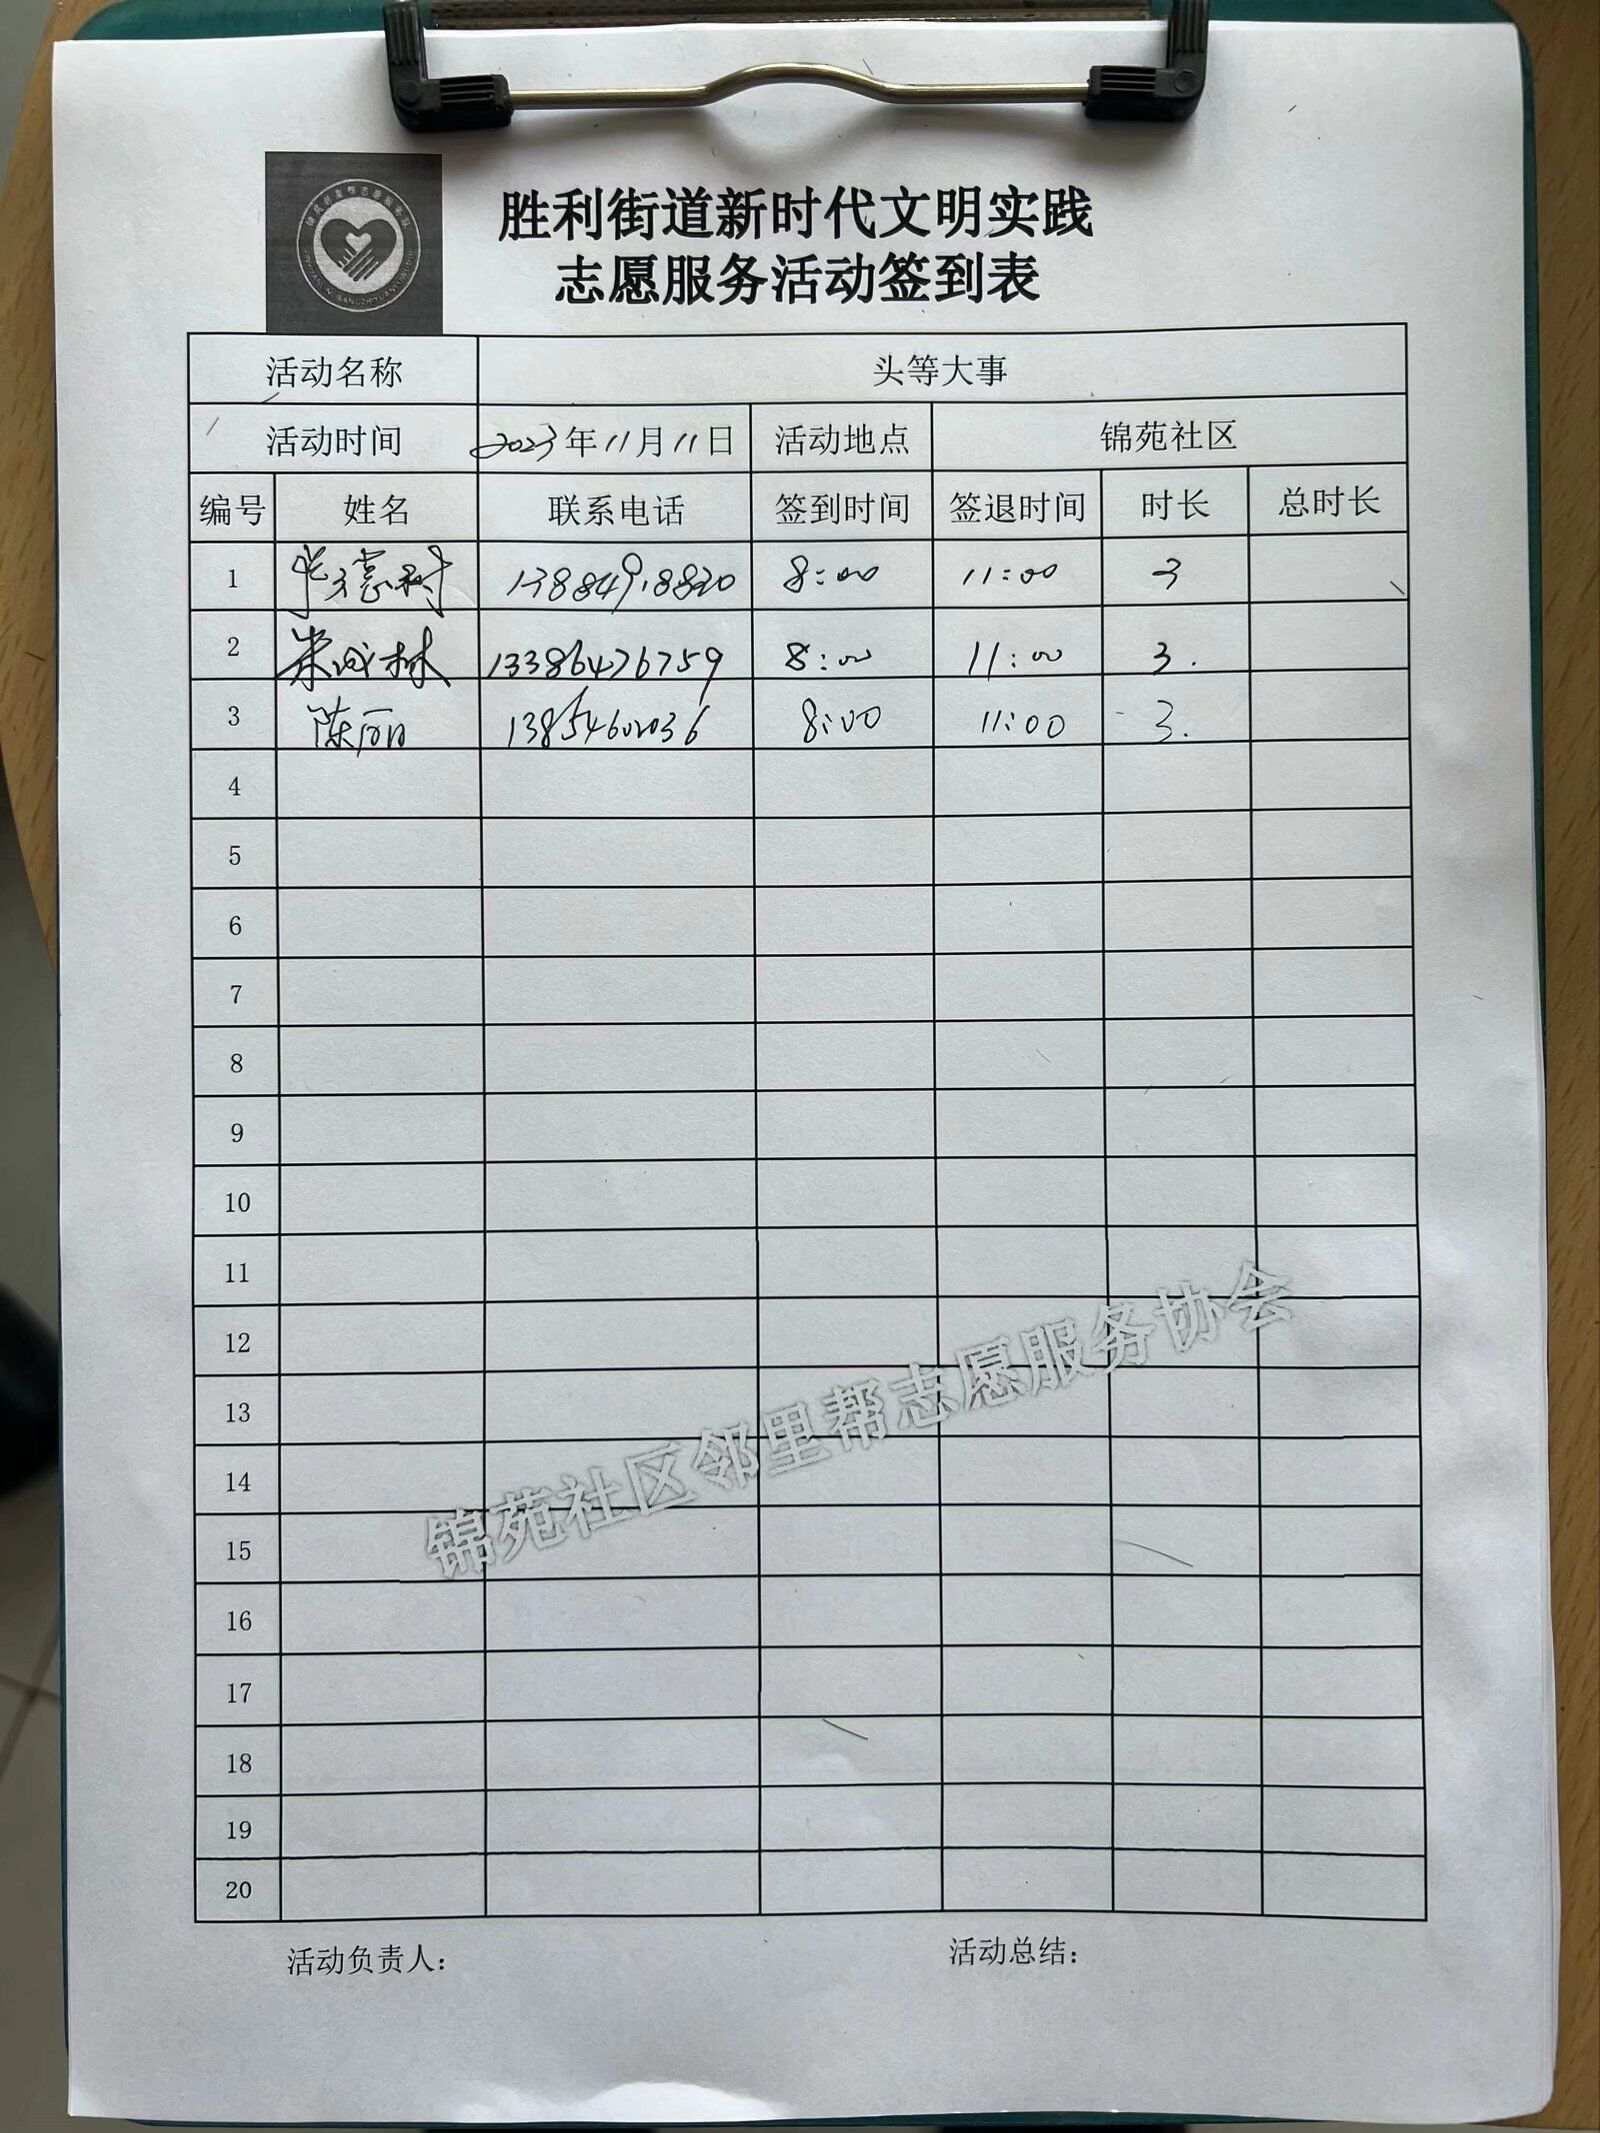 胜利街道新时代文明实践
志愿服务活动签到表
活动名称 头等大事
活动时间 2023年11月11日 活动地点 锦苑社区
编号 姓名 联系电话 签到时间 签退时间 时长 总时长
1 13884918820 8:00 11:00 3
2 朱成林 13386476759 8:00 11:00 3.
3 陈丽 13854602036 8:00 11:00 3.
4
5
6
7
8
9
10
11
12
13
14
15
16
17
18
19
20
锦苑社区邻里帮志愿服务协会
活动负责人： 活动总结：